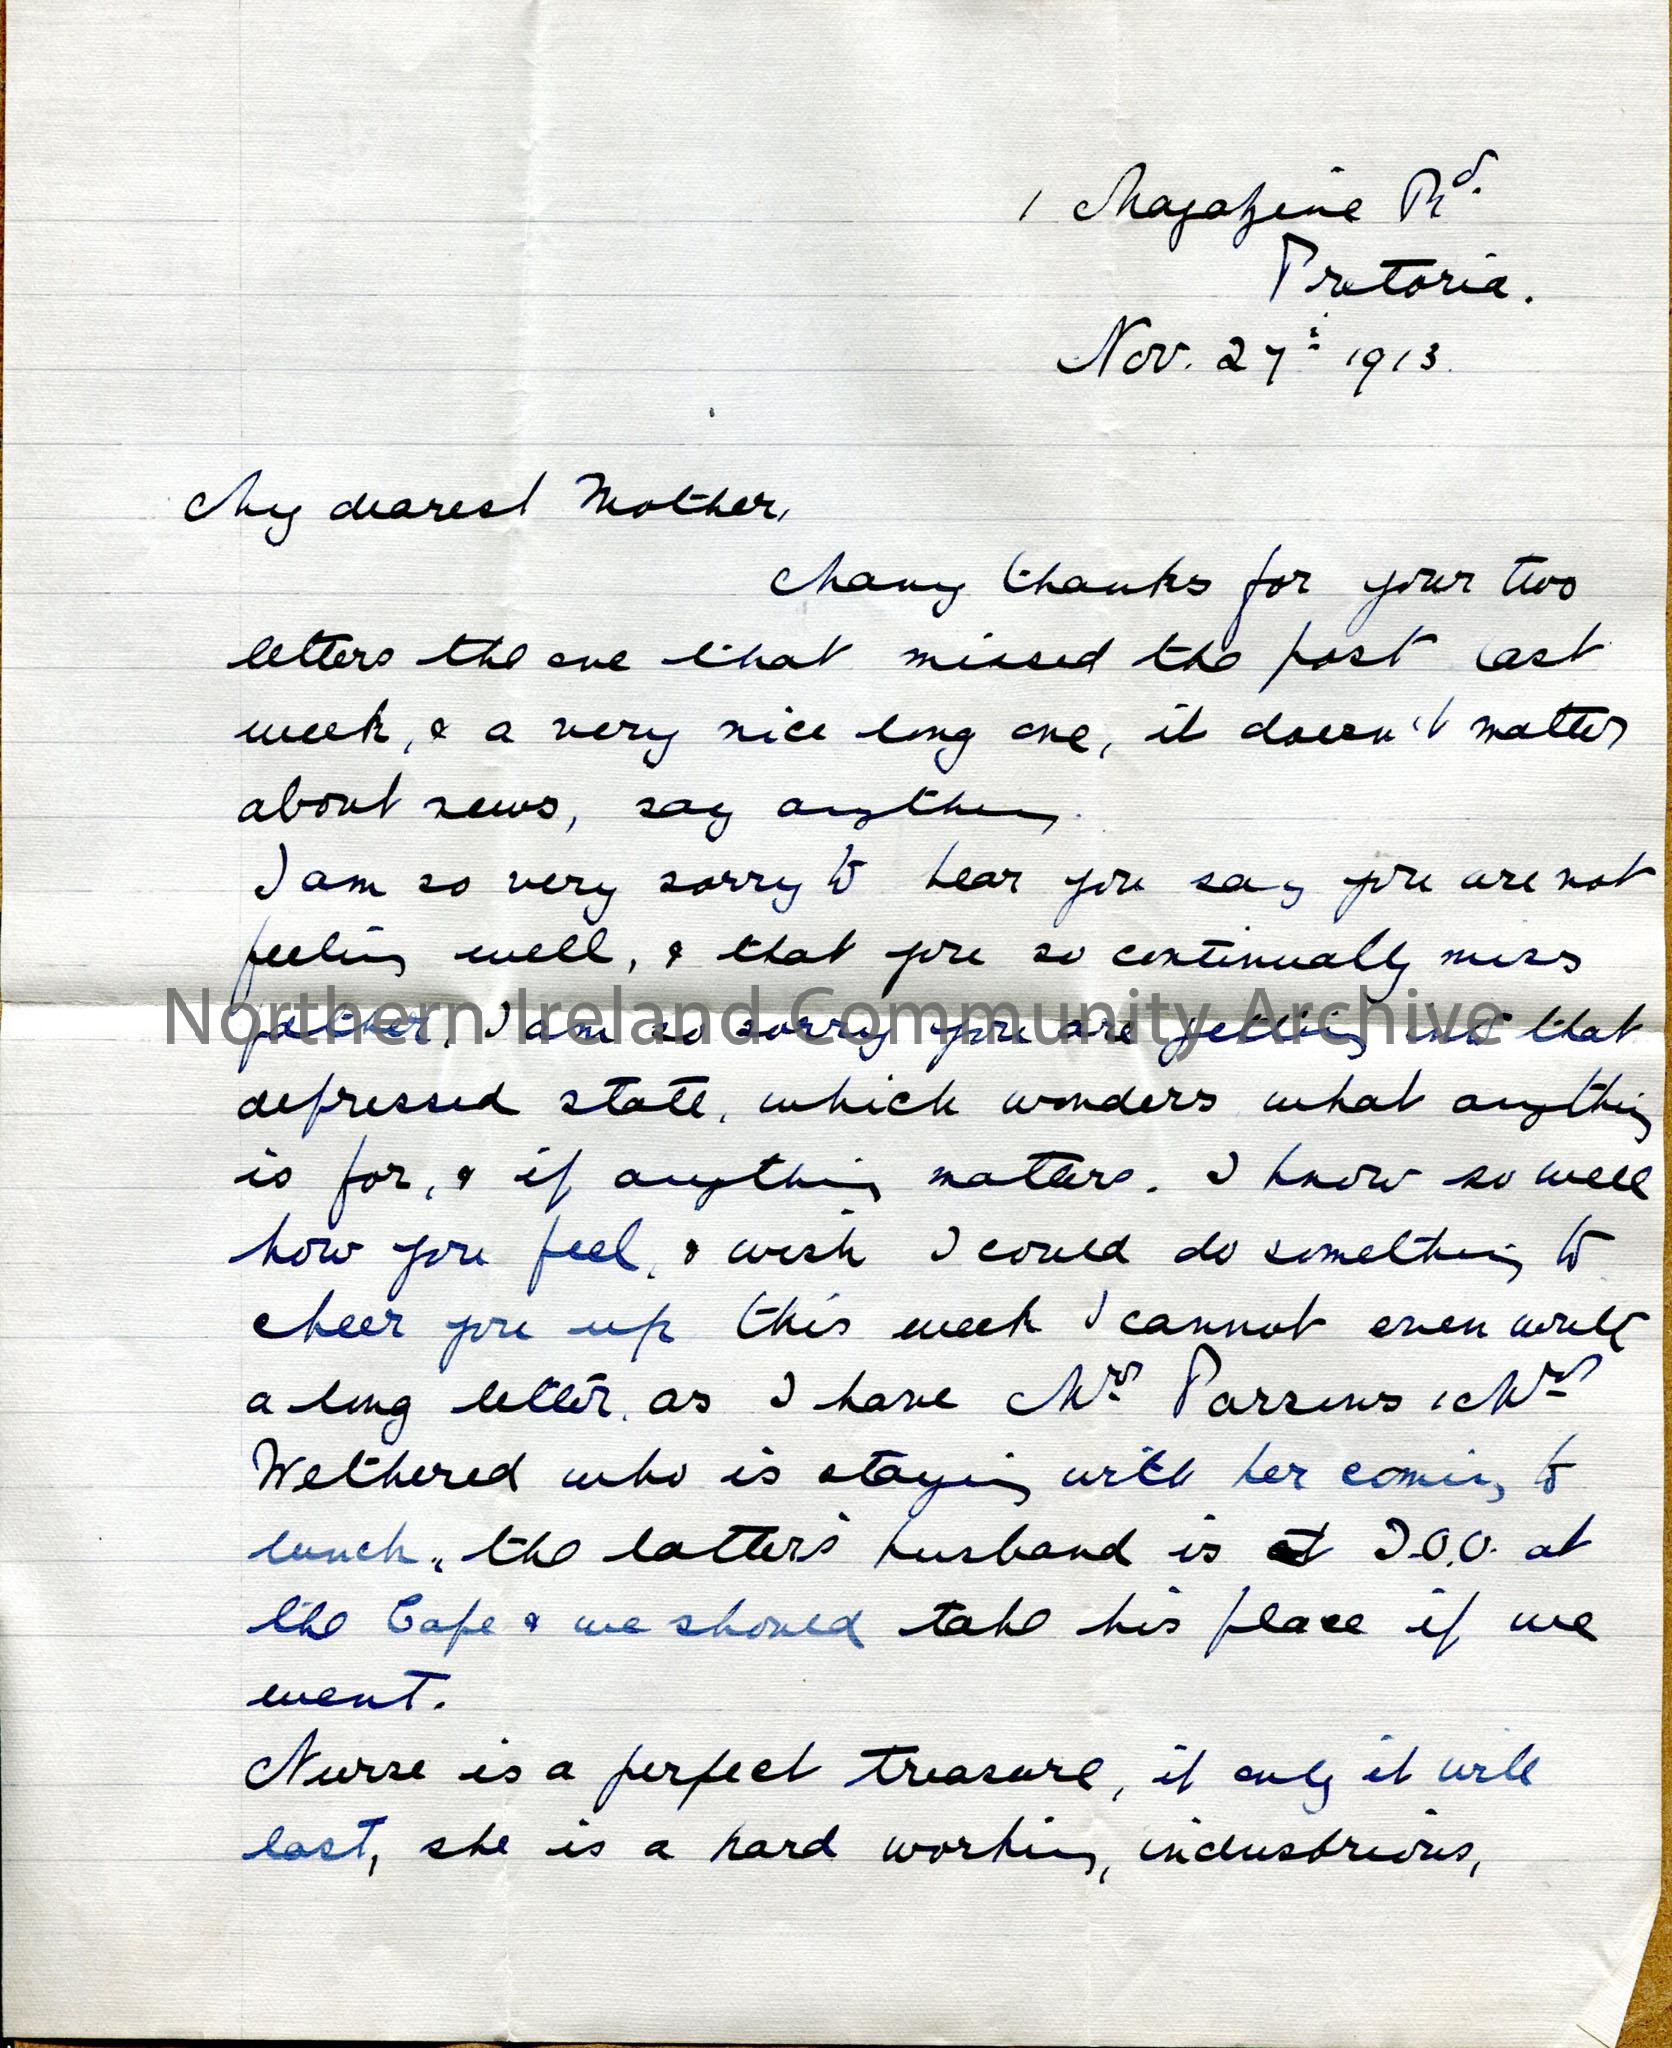 1 Magazine Rd.
Pretoria.
Nov. 27th 1913.
My dearest Mother,
Many thanks for your two
letters the one that missed the post last
week, & a very nice long one, it doesn't matter
about news, say anything.
I am so very sorry to hear you say you are not
feeling well, & that you so continually miss
father. I am so sorry you are getting into that
Northern Ireland Community Archive
depressed state, which wonders what anything
is for, & if anything matters. I know so well
how you feel, & wish I could do something to
cheer you up this week I cannot even write
a long letter, as I have Mrs Parsons & Mrs
Wethered who is staying with her coming to
lunch, the latter's husband is at I.O.O. at
the Cape & we should take his place if we
went.
Nurse is a perfect treasure, if only it will
last, she is a hard working, industrious,